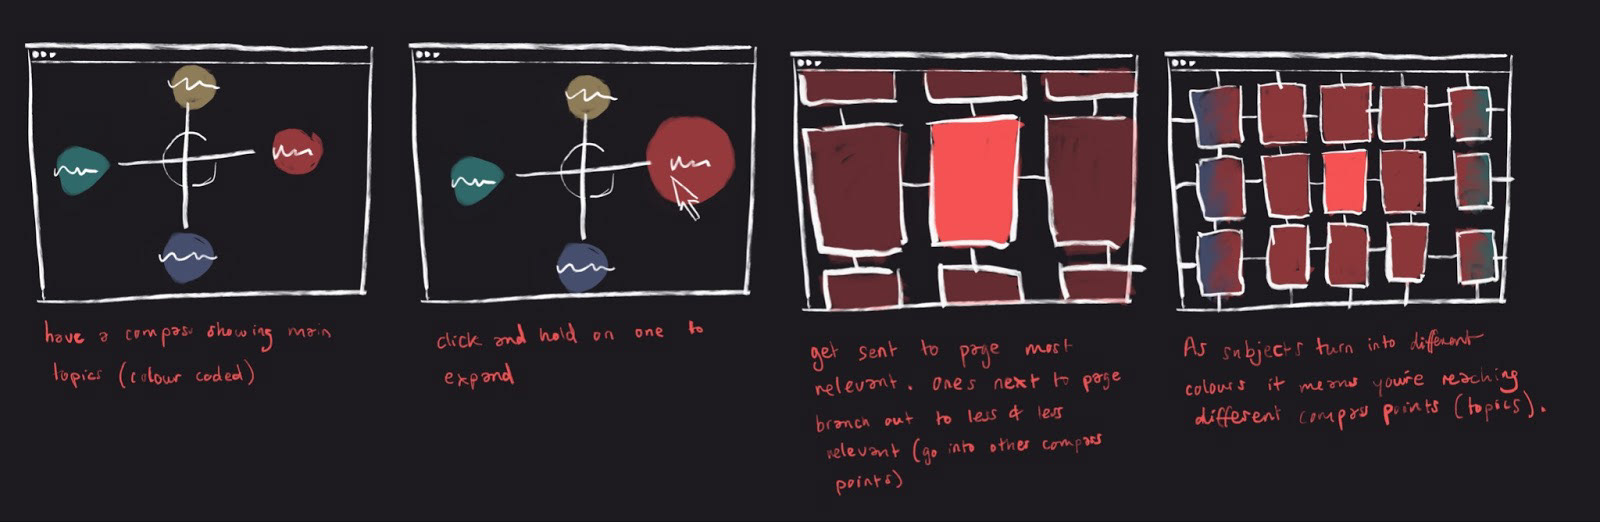 have a compass showing main
topics (colour coded)
click and hold on one to
expand
get sent to page most
relevant. ones next to page
branch out to less & less
relevant (go into other compass
points)
As subjects turn into different
colours it means you're reaching
different compass points (topics).